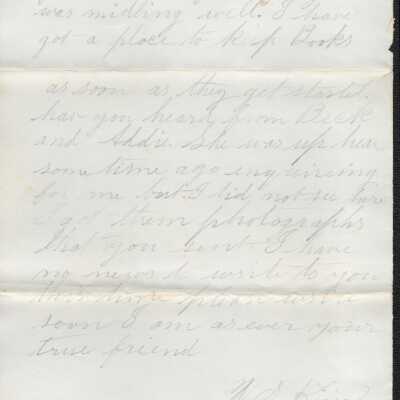 was midling well. I have
got a place to keep Books
as soon as they get started.
hav you heard from Beck
and Addie. She was up hear
some time ago enquireing
for me but I did not see hare
I got them photographs
that you sent I have
no news to write to you
this time please write
soon I am as ever your
true friend